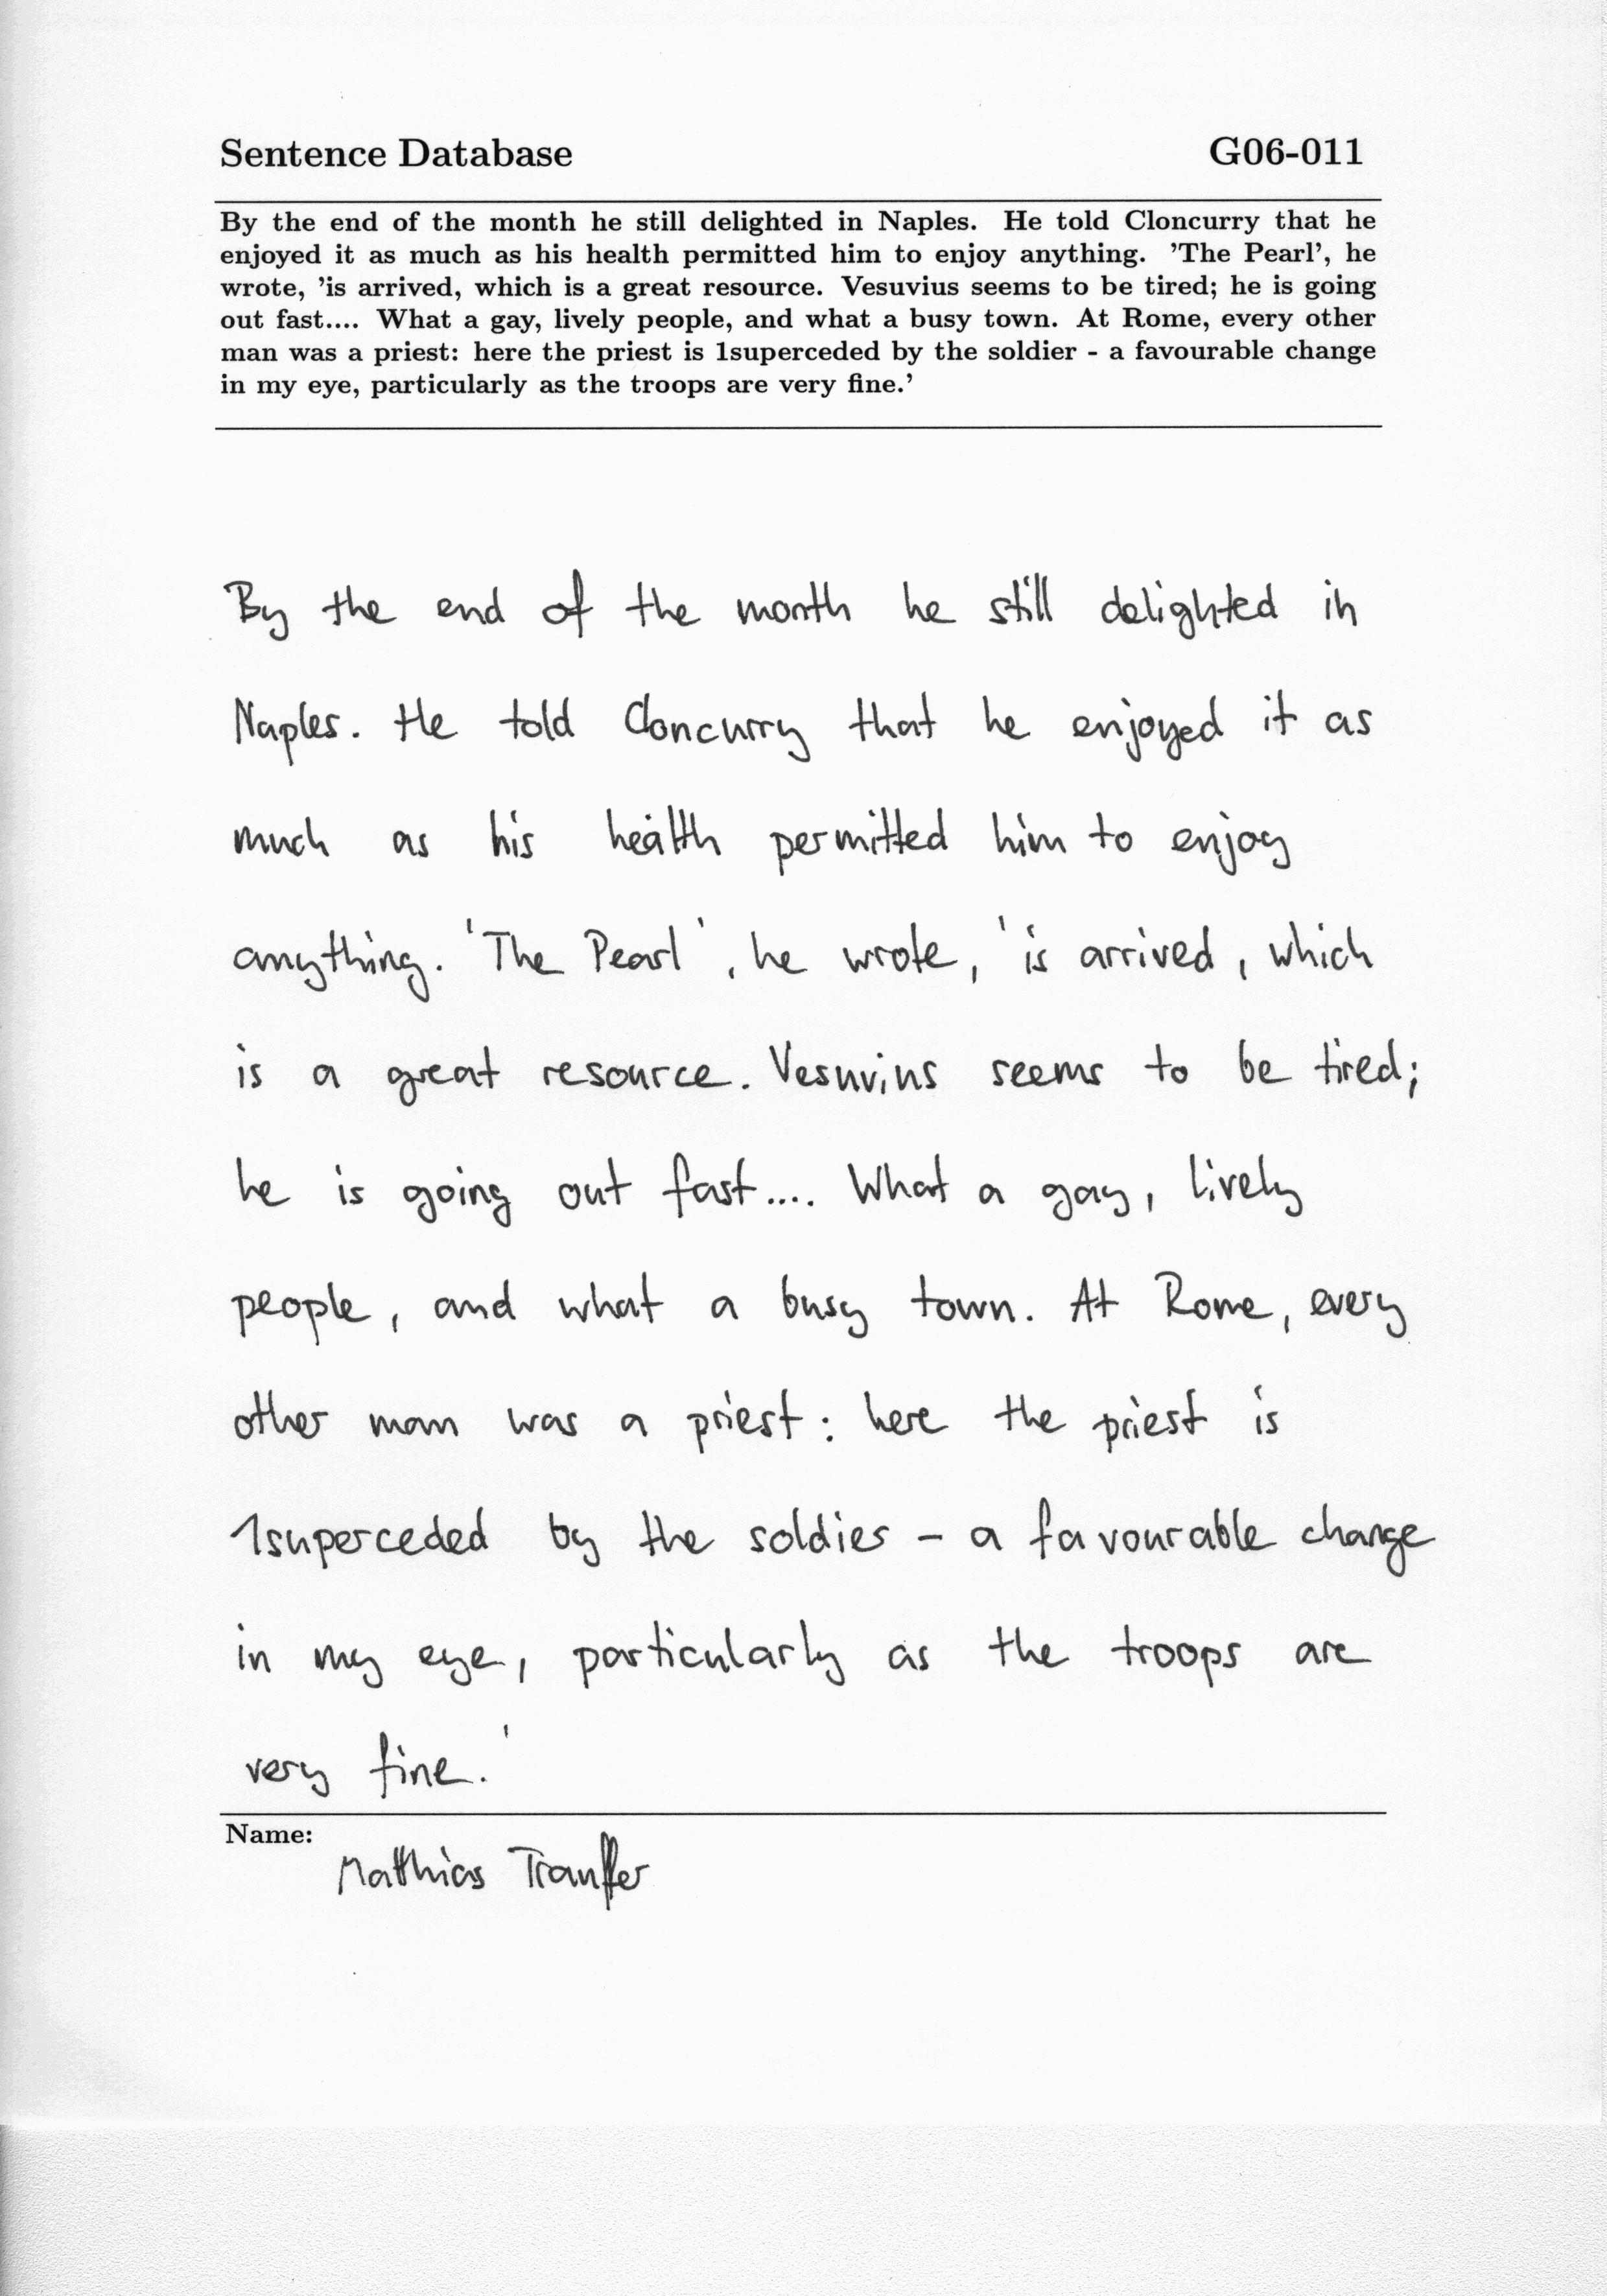 Sentence Database G06-011
By the end of the month he still delighted in Naples. He told Cloncurry that he
enjoyed it as much as his health permitted him to enjoy anything. 'The Pearl', he
wrote, 'is arrived, which is a great resource. Vesuvius seems to be tired; he is going
out fast.... What a gay, lively people, and what a busy town. At Rome, every other
man was a priest: here the priest is 1superceded by the soldier - a favourable change
in my eye, particularly as the troops are very fine.'
By the end of the month he still delighted in
Naples. He told Cloncurry that he enjoyed it as
much as his health permitted him to enjoy
anything. 'The Pearl', he wrote, 'is arrived, which
is a great resource. Vesuvius seems to be tired;
he is going out fast.... What a gay, lively
people, and what a busy town. At Rome, every
other man was a priest: here the priest is
1superceded by the soldier - a favourable change
in my eye, particularly as the troops are
very fine.'
Name:
Matthias